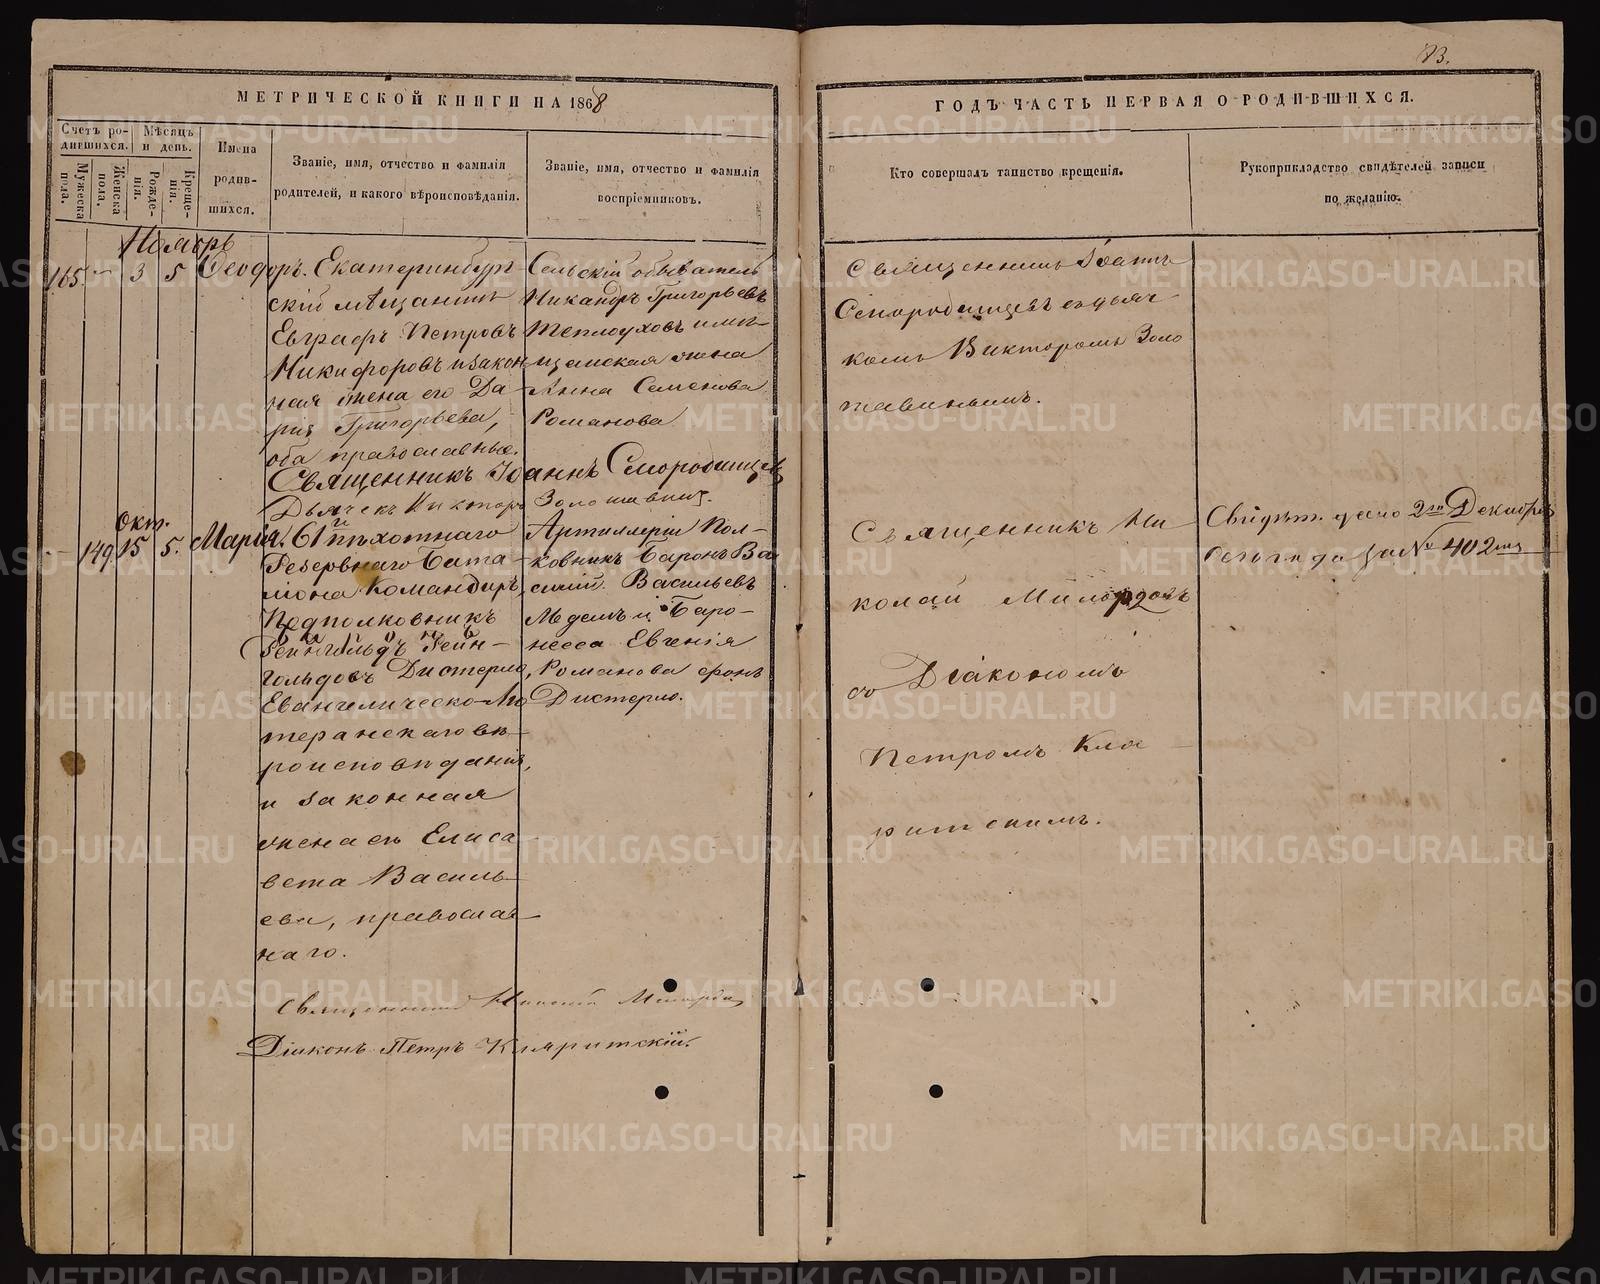 83.
МЕТРИЧЕСКОЙ КНИГИ НА 1868
ГОДЪ ЧАСТЬ ПЕРВАЯ О РОДИВШИХСЯ.
Счетъ родившихся.
Мужеска пола.
Женска пола.
Мѣсяцъ и день.
Рожденія.
Крещенія.
Имена родившихся.
Званіе, имя, отчество и фамилія родителей, и какого вѣроисповѣданія.
Званіе, имя, отчество и фамилія воспріемниковъ.
Кто совершалъ таинство крещенія.
Рукоприкладство свидѣтелей записи по желанію.
Ноябрь
165. — 3 5 Ѳеодоръ.
Екатеринбург-
скій мѣщанинъ
Евграфъ Петровъ
Никифоровъ и закон-
ная жена его Да-
рья Григорьева,
оба православные.
Сельскій обыватель
Никандръ Григорьевъ
Теплоуховъ и мѣ-
щанская жена
Анна Семенова
Романова
Священникъ Іоаннъ
Смородинцевъ съ дьяч-
комъ Викторомъ Золо
тавинымъ.
Священникъ Іоаннъ Смородинцевъ
Дьячекъ Викторъ Золотавинъ.
Окт.
— 149. 15 5. Марія.
61 пѣхотнаго
Резервнаго Бата-
ліона Командиръ,
Подполковникъ
Рейнгольдъ Рейн-
гольдовъ Дистерло,
Евангелическо-Лю
теранскаго вѣ-
роисповѣданія,
и законная
жена его Елиса
вета Василь-
ева, православ-
наго.
Артиллеріи Пол-
ковникъ Баронъ Ва
силій Васильевъ
Медемъ и Баро-
несса Евгенія
Романова фонъ
Дистерло.
Священникъ Ни
колай Милордовъ
съ Діакономъ
Петромъ Кла
ритскимъ.
Свидѣт. дано 2го Декабря
сего года за № 402мъ
Священникъ Николай Милордовъ
Діаконъ Петръ Кларитскій.
METRIKI.GASO-URAL.RU